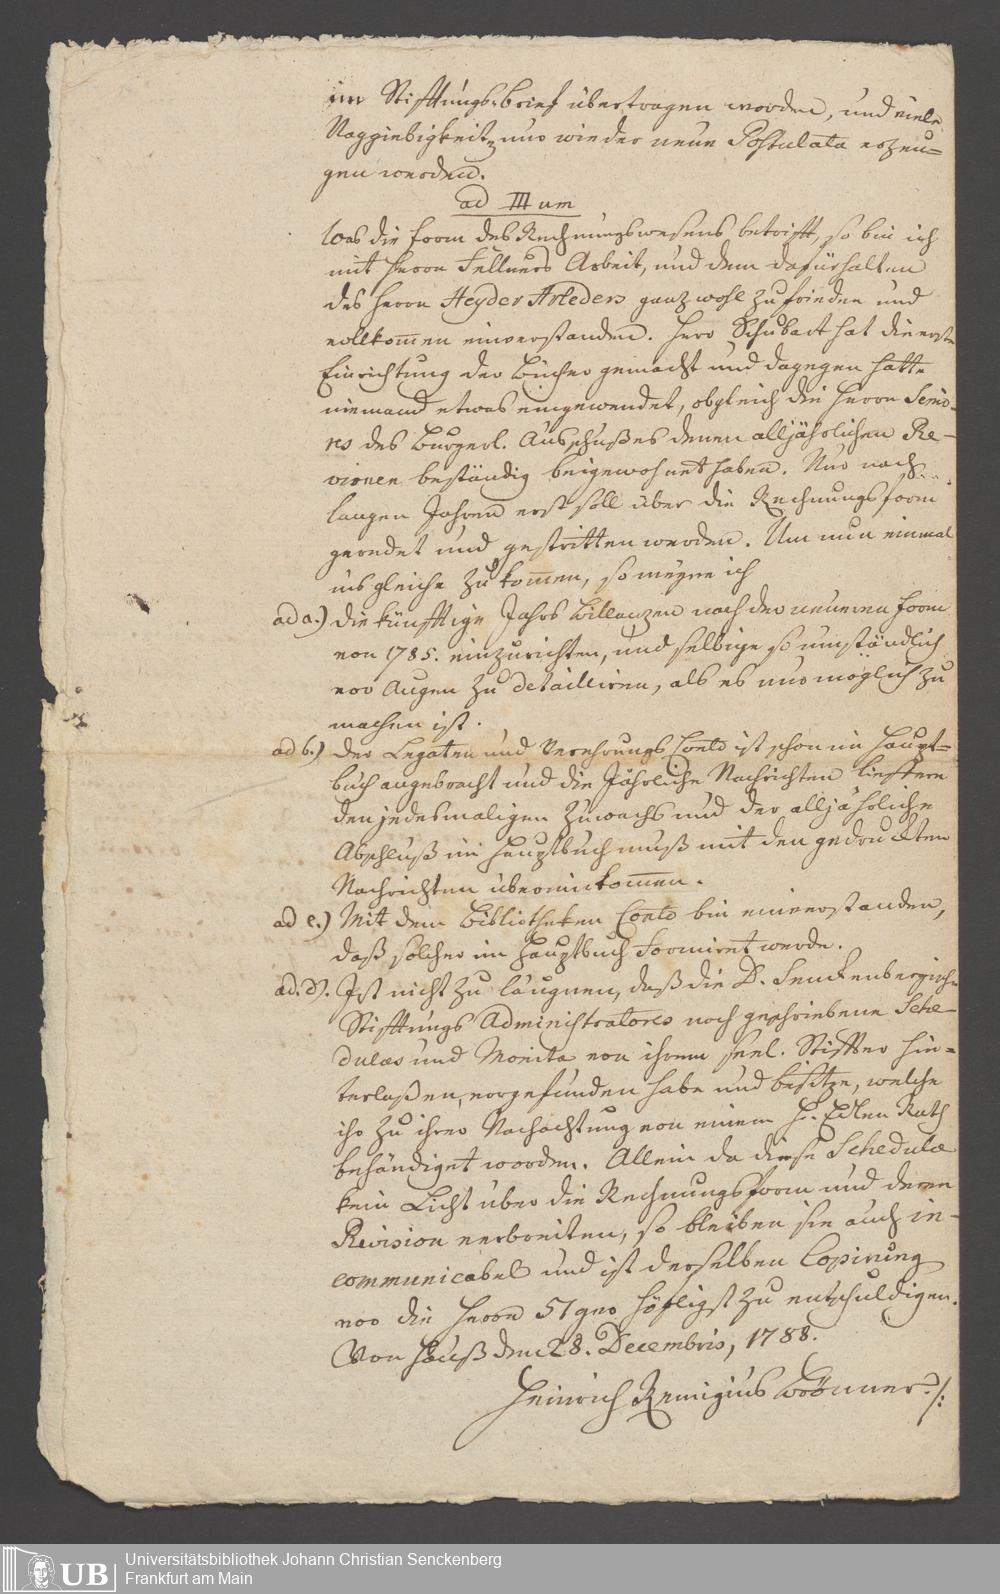 im Stifftungs-brief übertragen worden, und viele
Nachgiebigkeit, nur wieder neue Postulata erzeu-
gen werden.
ad III um
Was die Form des Rechnungswesens betrifft, so bin ich
mit Herrn Fellners Arbeit, und dem dafürhalten
des Herrn Heyder Arleders ganz wohl zufrieden und
vollkom̄en einverstanden. Herr Schubart hat die erste
Einrichtung der Bücher gemacht und dagegen hatte
niemand etwas eingewendet, obgleich die Herrn Senio-
res des Burgerl. Ausschußes denen alljährlichen Re-
vionen beständig beigewohnet haben. Nur nach
langen Jahren erst soll über die Rechnungsform
geredet und gestritten werden. Um nun einmal
ins gleiche zu kom̄en, so meyne ich
ad a.) die künfftige Jahrs Billanzen nach der neueren Form
von 1785. einzurichten, und selbige so umständlich
vor Augen zu detailliren, als es nur möglich zu
machen ist.
ad b.) der Legaten und Verehrungs Conto ist schon im Haupt-
buch angebracht und die Jährliche Nachrichten lieffern
den jedesmaligen Zuwachs und der alljährliche
Abschluß im Hauptbuch muß mit den gedruckten
Nachrichten übereinkom̄en.
ad c.) Mit dem Bibliotheken Conto bin einverstanden,
daß solcher im Hauptbuch formiret werde.
ad. d). Ist nicht zu läugnen, daß die D. Senckenbergische
Stifftungs Administratores noch geschriebene Sche-
dulas und Monita von ihrem seel. Stiffter hin-
terlaßen, vorgefunden habe und besitze, welche
ihr zu ihrer Nachachtung von einem H. Edlen Rath
behändiget worden. Allein da diese Schedulæ
kein Licht über die Rechnungsform und deren
Revision verbreiten, so bleiben sie auch in-
communicabel und ist derselben Copirung
vor die Herrn 51ger höfligst zu entschuldigen.
Von Hauß den 28. Decembris, 1788.
Heinrich Remigius Brönner. /:
Universitätsbibliothek Johann Christian Senckenberg
Frankfurt am Main
UB